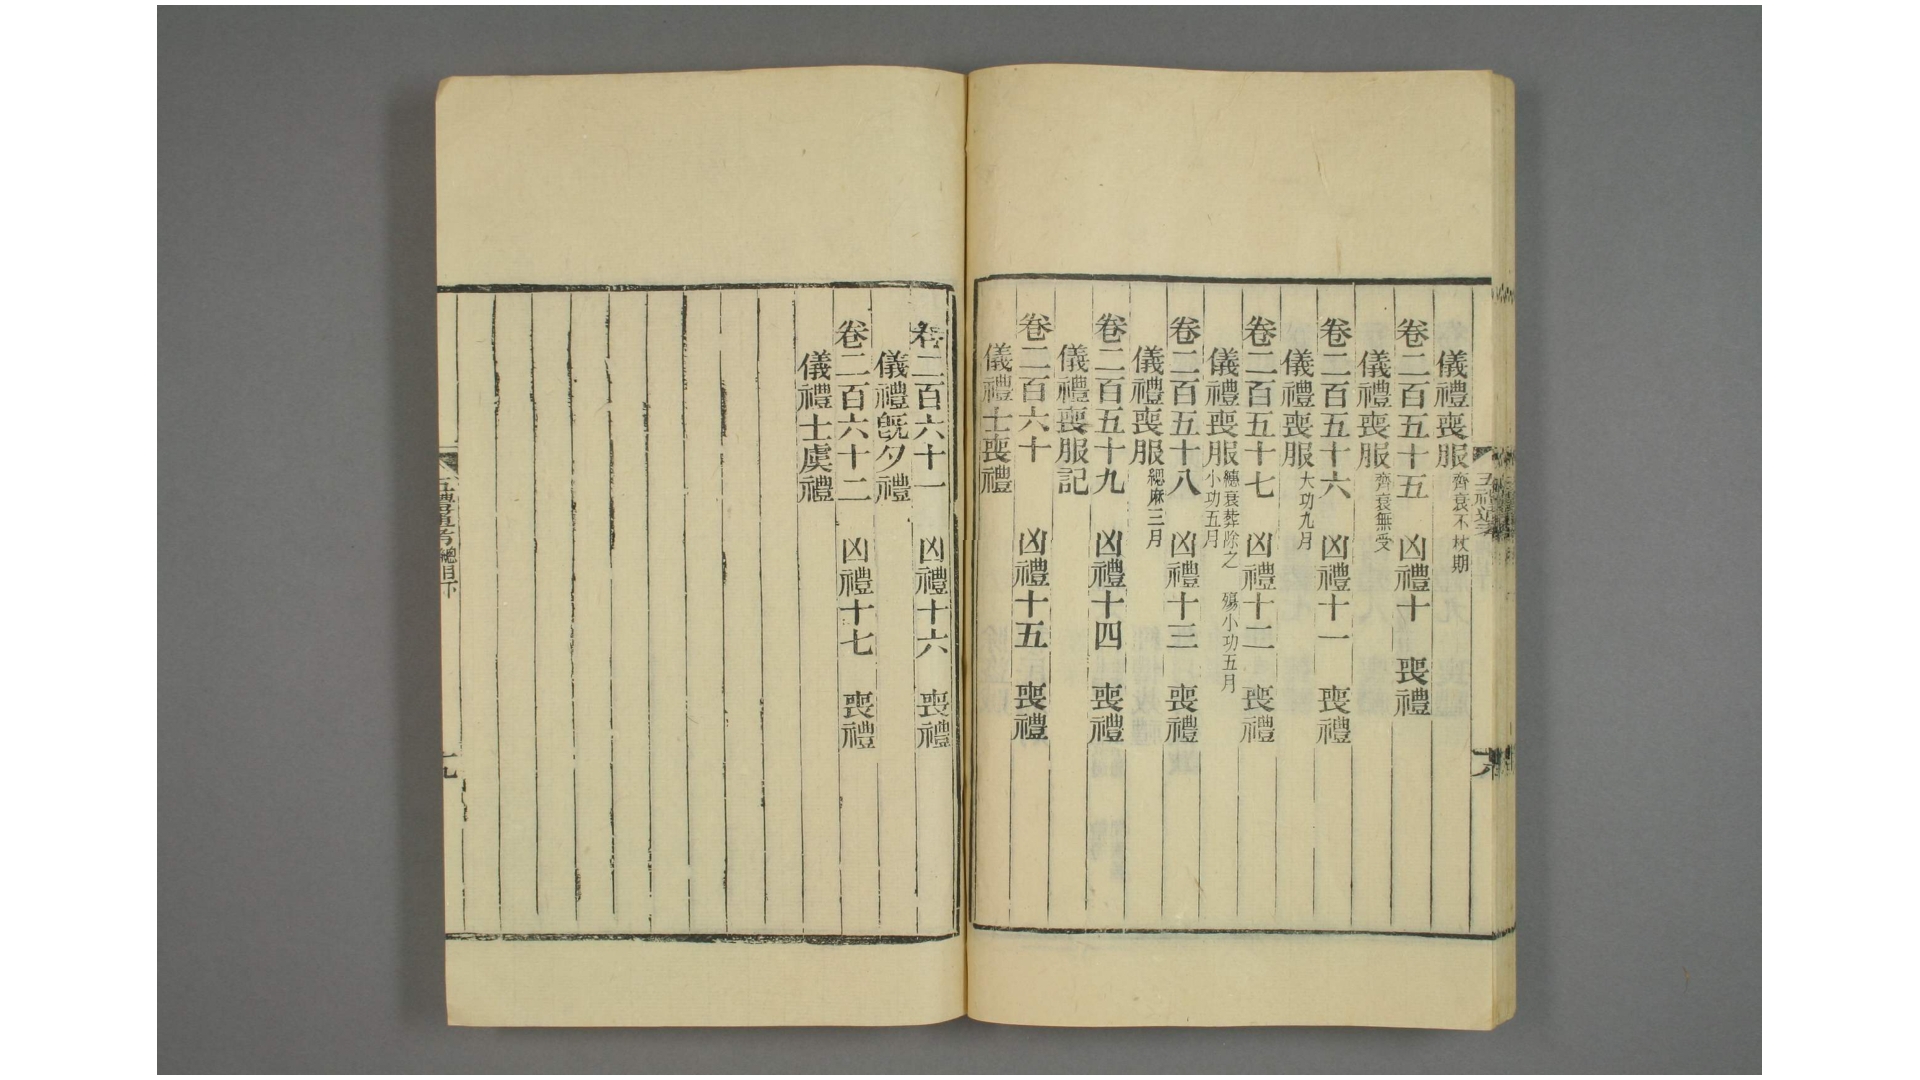 儀禮喪服 齊衰不杖期
卷二百五十五 凶禮十 喪禮
儀禮喪服 齊衰無受
卷二百五十六 凶禮十一 喪禮
儀禮喪服 大功九月
卷二百五十七 凶禮十二 喪禮
儀禮喪服 繐衰葬除之 殤小功五月
小功五月
卷二百五十八 凶禮十三 喪禮
儀禮喪服 緦麻三月
卷二百五十九 凶禮十四 喪禮
儀禮喪服記
卷二百六十 凶禮十五 喪禮
儀禮士喪禮
卷二百六十一 凶禮十六 喪禮
儀禮旣夕禮
卷二百六十二 凶禮十七 喪禮
儀禮士虞禮
五禮通考總目下
十九